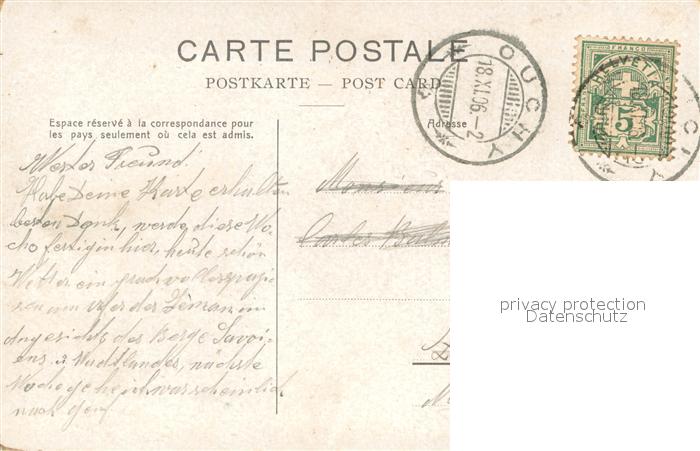 CARTE POSTALE
POSTKARTE — POST CARD
Espace réservé à la correspondance pour
les pays seulement où cela est admis.
Adresse
OUCHY
18.XI.06-2
FRANCO
HELVETIA
5
OUCHY
Werter Freund!
Habe Deine Karte erhalten
besten Dank, werde diese Wo-
che fertig in hier, heute schön
Wetter ein prachtvoller spazie
am Ufer des Léman im
Angesichts des Berge Savoi-
ens & Wadtlandes, nächste
Woche gehe ich warscheinlich
nach Genf
Monsieur
Charles
privacy protection
Datenschutz